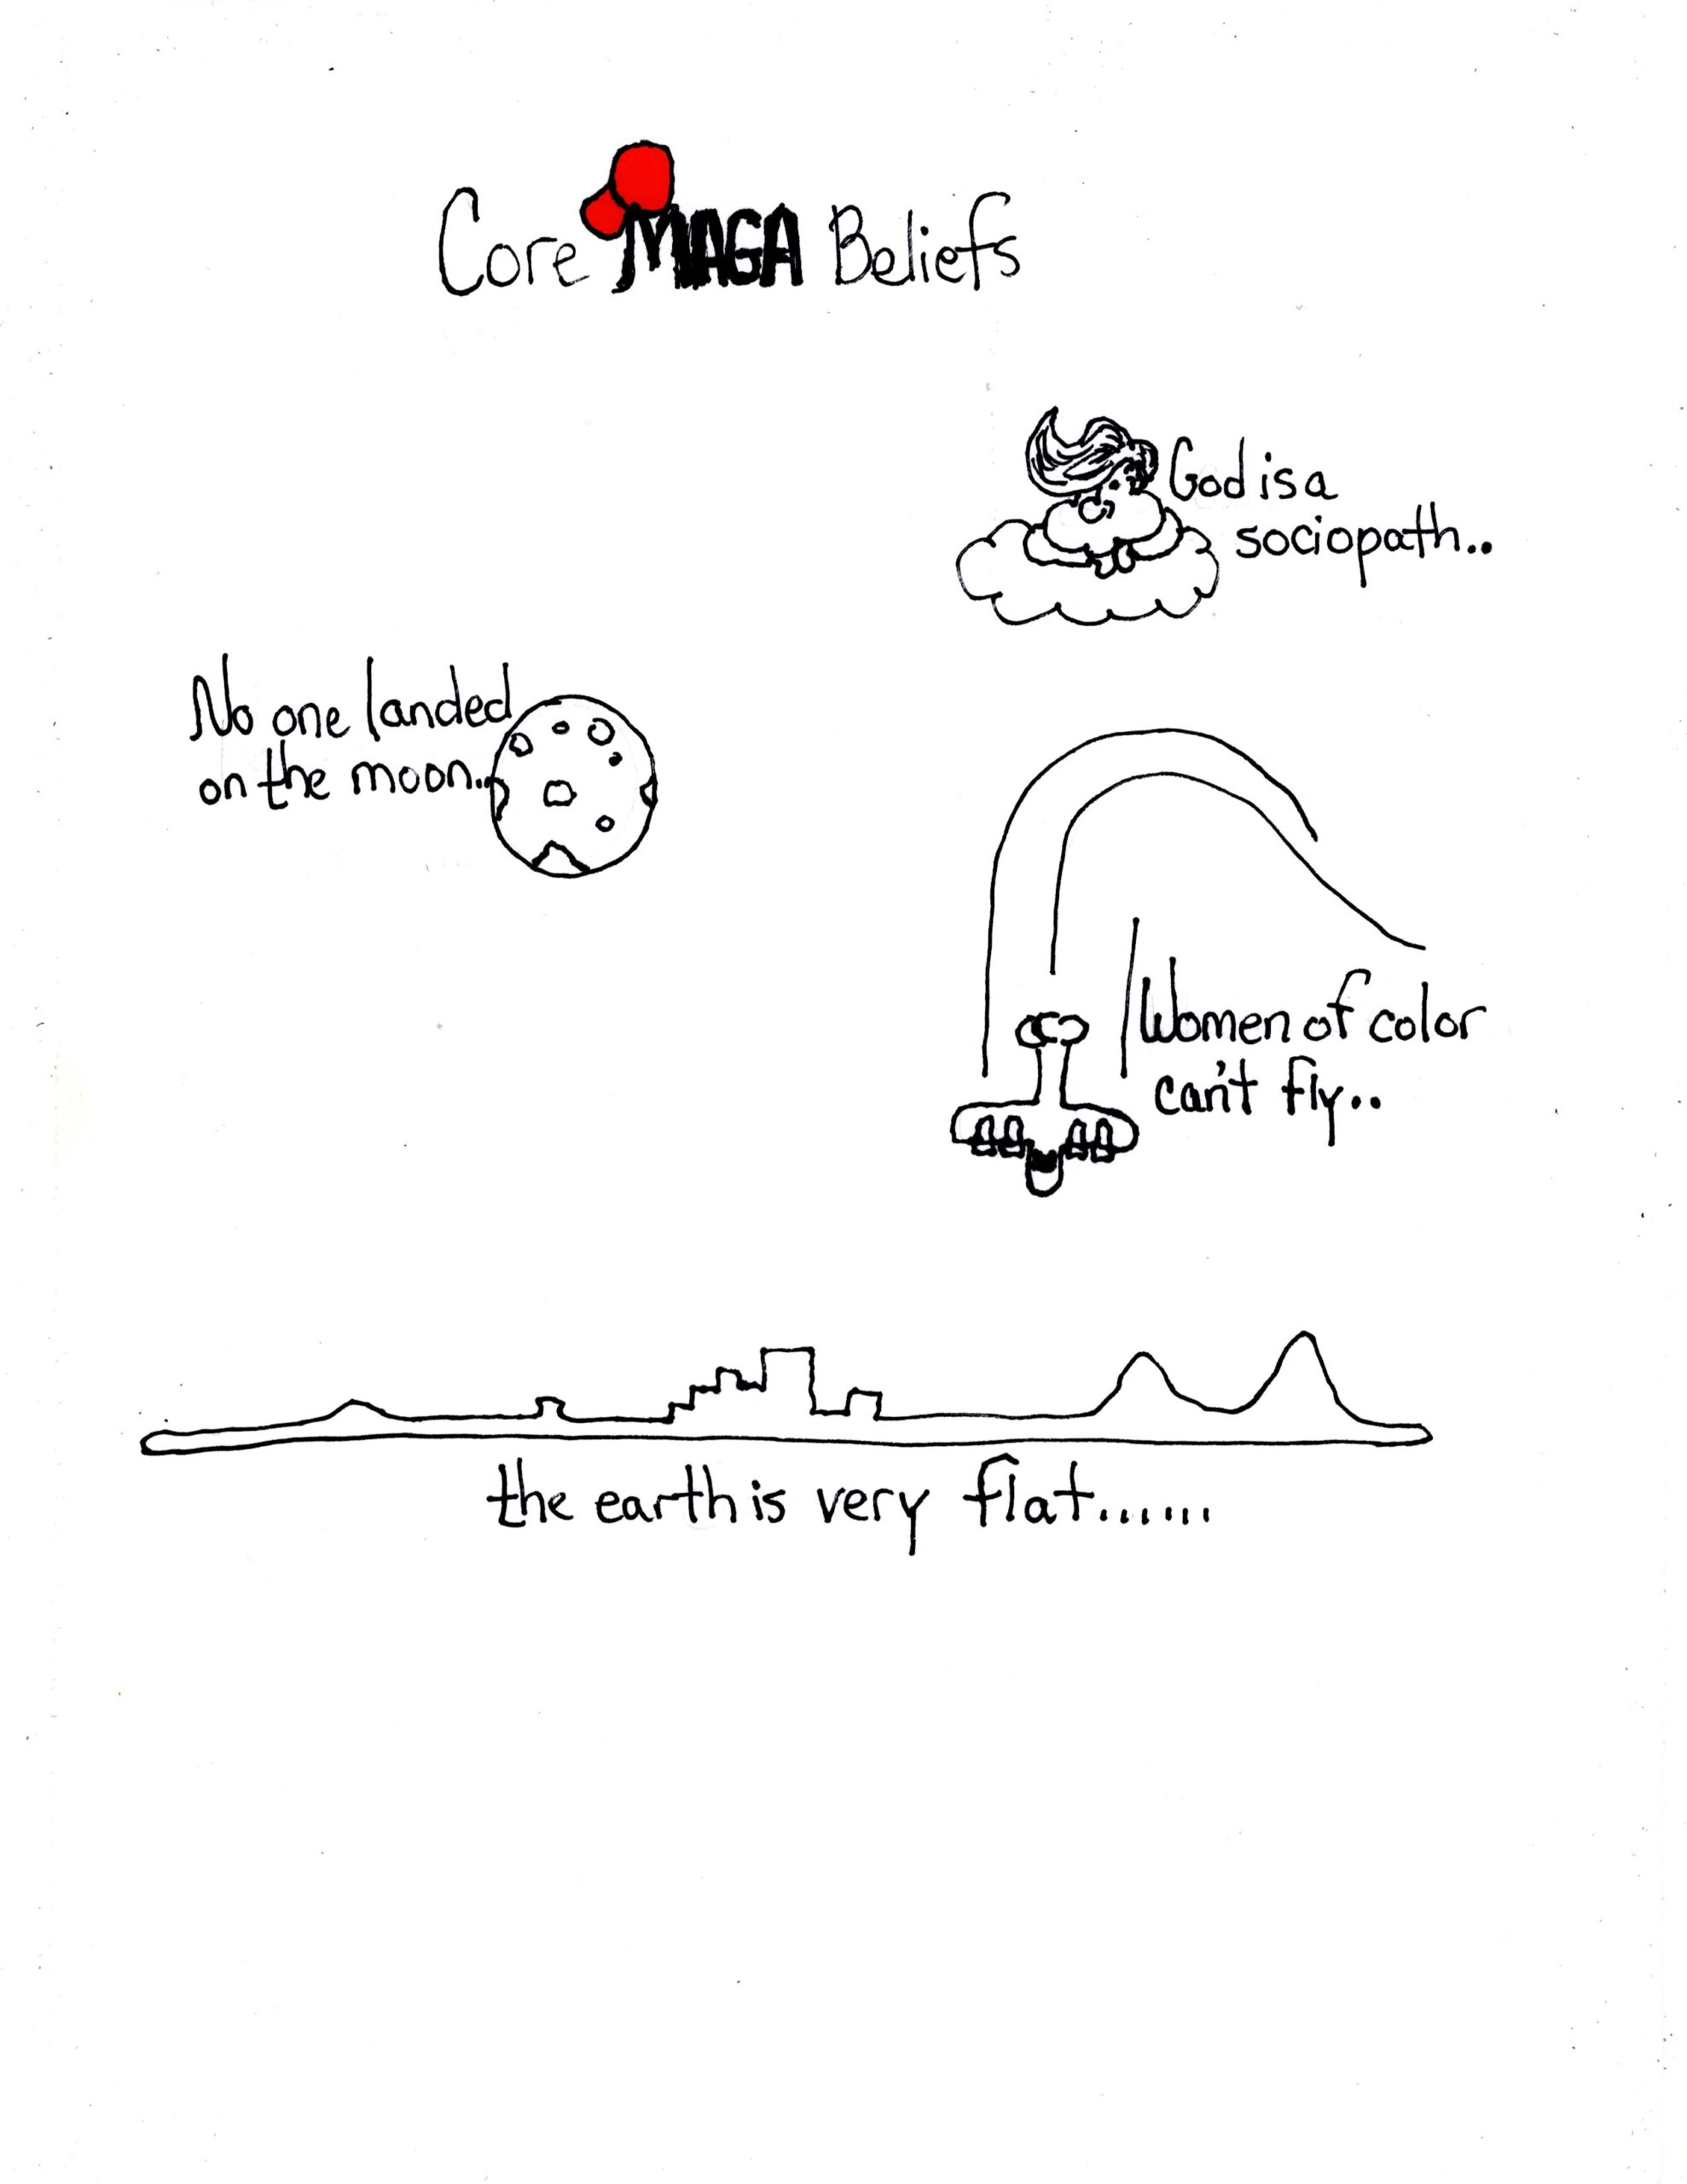 Core MAGA Beliefs
God is a
sociopath..
No one landed
on the moon..
Women of color
can't fly..
the earth is very flat.......